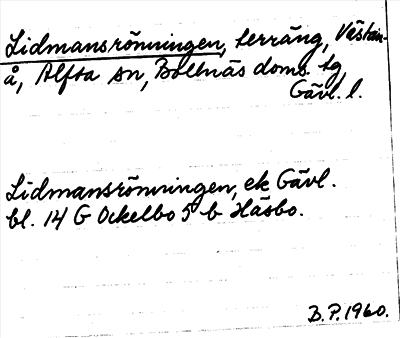 Lidmansrönningen, terräng, Västan-
å, Alfta sn, Bollnäs doms. tg,
Gävl. l.
Lidmansrönningen, ek Gävl.
bl. 14 G Ockelbo 5 b Häsbo.
B.P. 1960.